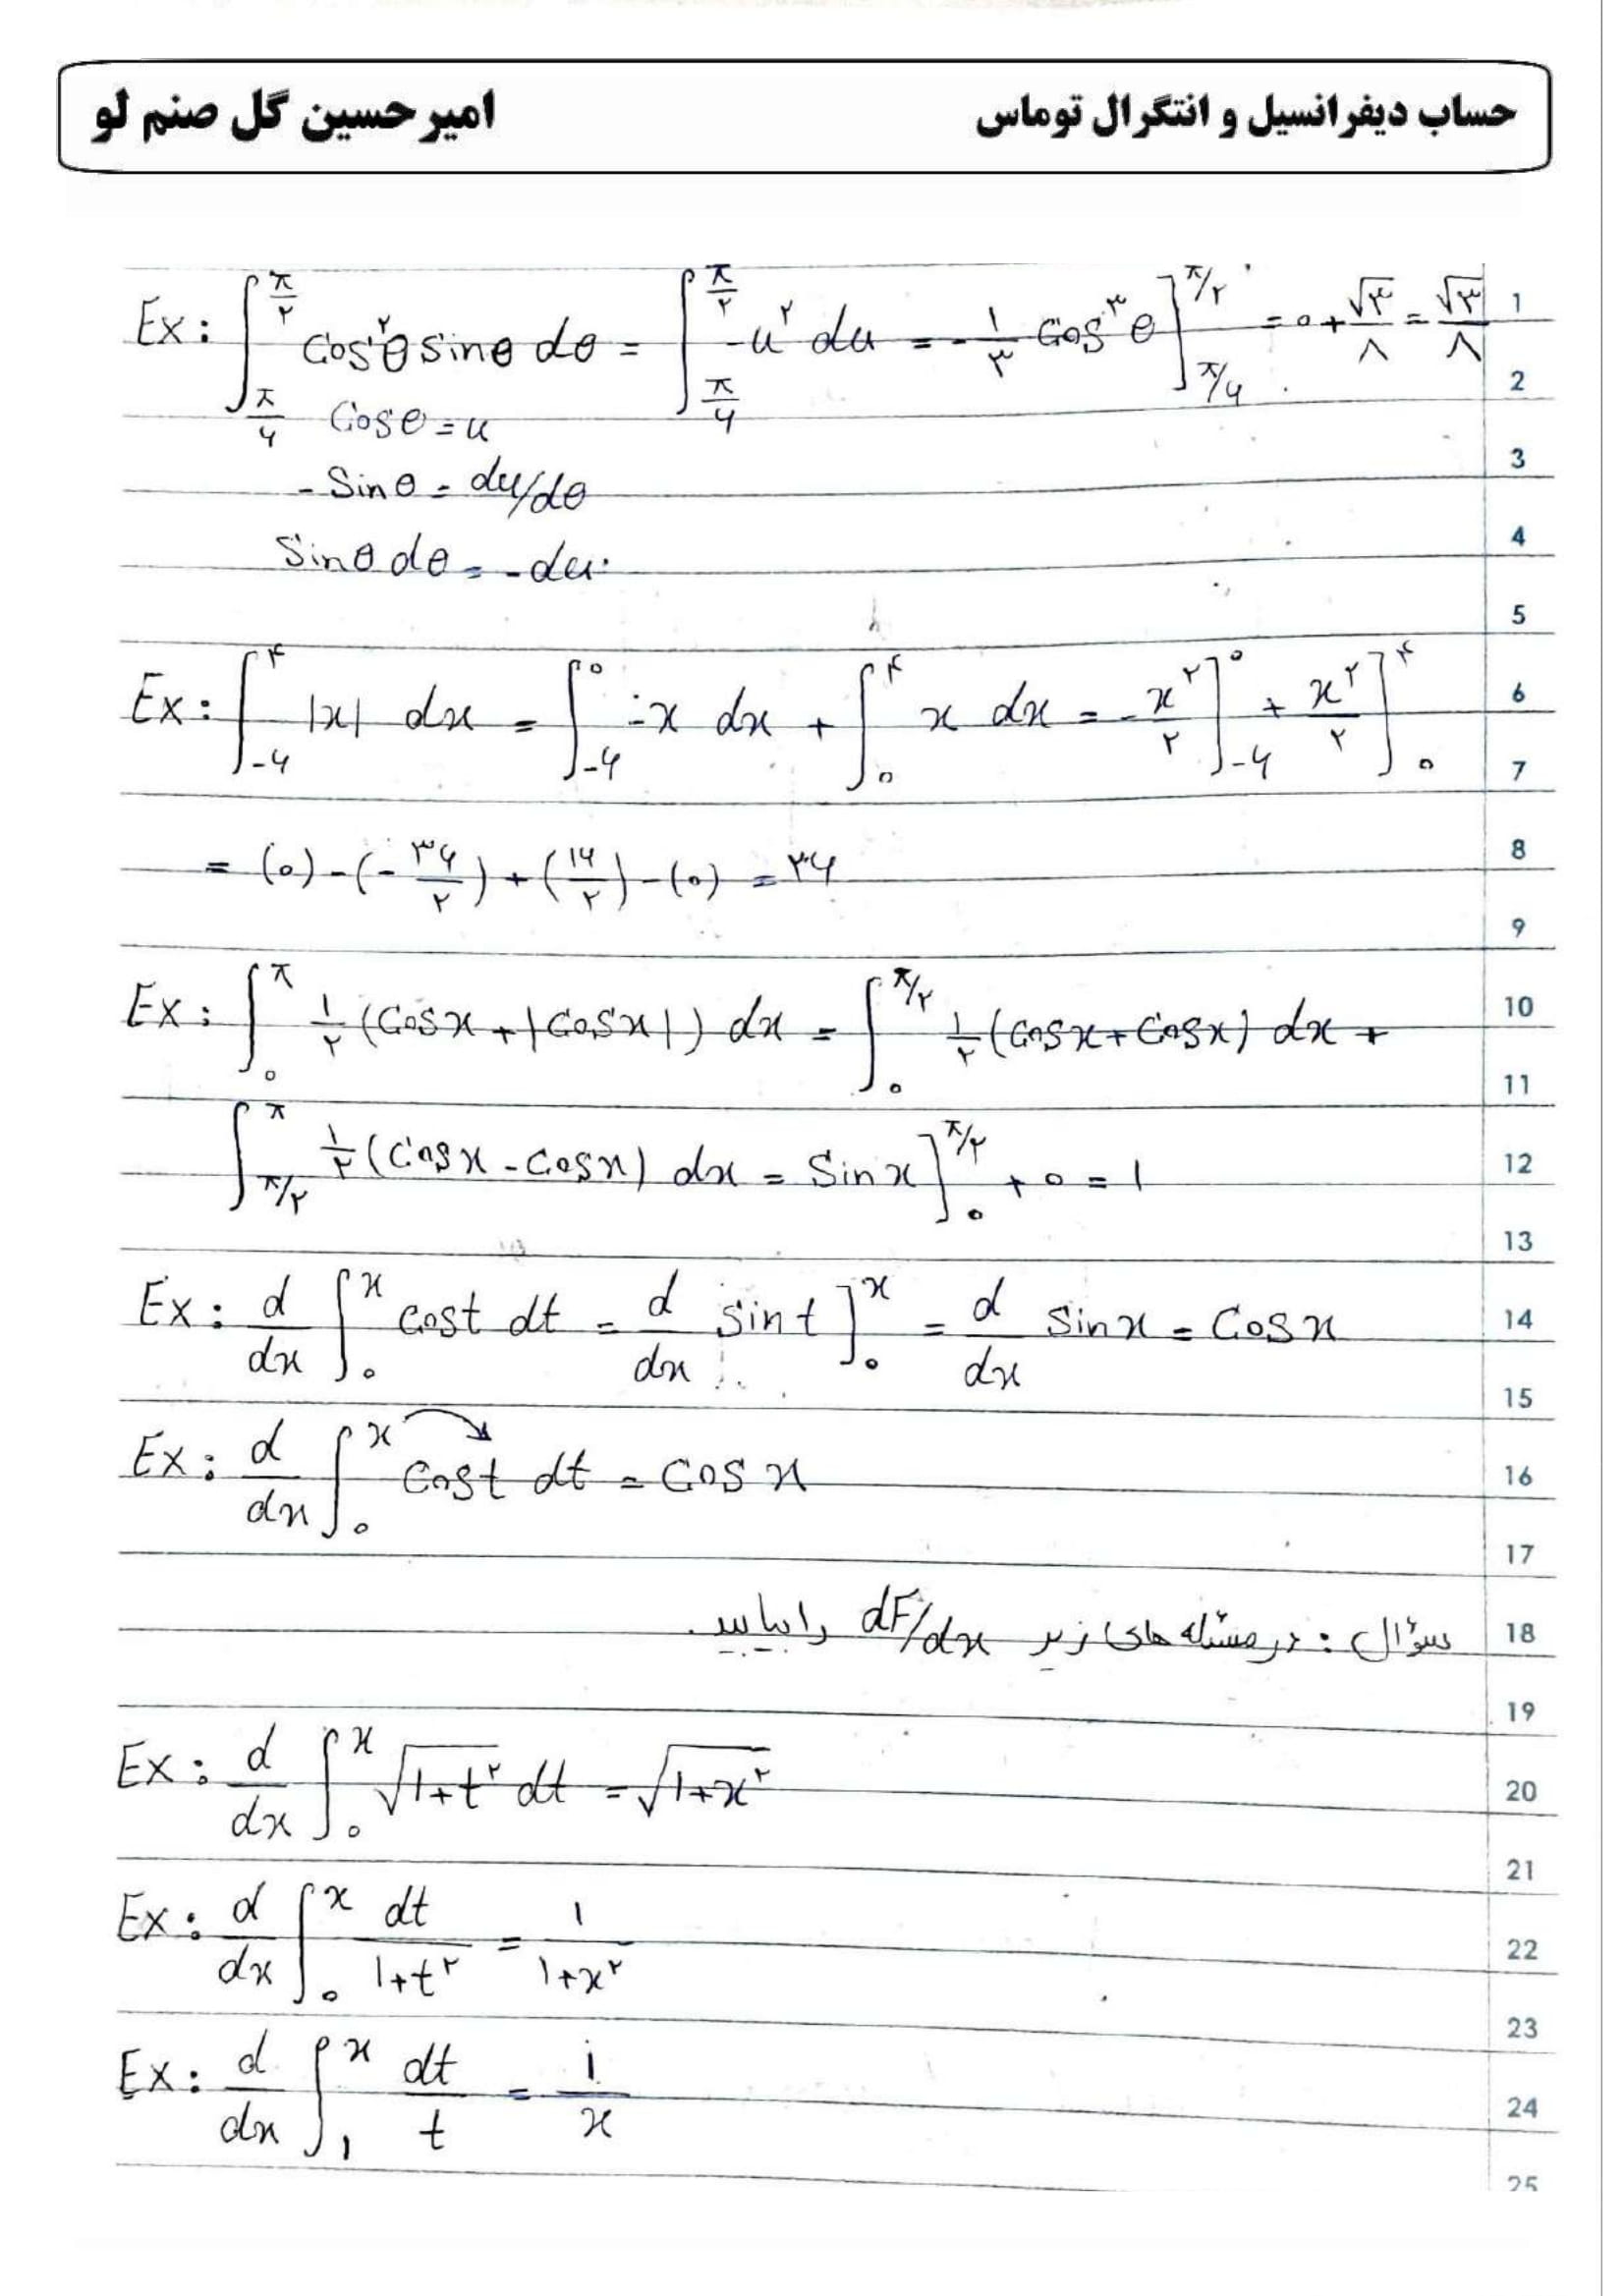 حساب دیفرانسیل و انتگرال توماس
امیرحسین گل صنم لو
Ex: ∫_{π/۶}^{π/۲} Cos²θ sinθ dθ = ∫_{π/۶}^{π/۲} -u² du = -۱/۳ Cos³θ ]_{π/۶}^{π/۲} = ۰ + √۳/۸ = √۳/۸
Cosθ = u
-Sinθ = du/dθ
Sinθ dθ = -du
Ex: ∫_{-۶}^{۴} |x| dx = ∫_{-۶}^{۰} -x dx + ∫_{۰}^{۴} x dx = -x²/۲ ]_{-۶}^{۰} + x²/۲ ]_{۰}^{۴}
= (۰) - (-۳۶/۲) + (۱۶/۲) - (۰) = ۲۶
Ex: ∫_{۰}^{π} ۱/۲ (Cosx + |Cosx|) dx = ∫_{۰}^{π/۲} ۱/۲ (Cosx + Cosx) dx +
∫_{π/۲}^{π} ۱/۲ (Cosx - Cosx) dx = Sinx ]_{۰}^{π/۲} + ۰ = ۱
Ex: d/dx ∫_{۰}^{x} Cost dt = d/dx Sint ]_{۰}^{x} = d/dx Sinx = Cosx
Ex: d/dx ∫_{۰}^{x} Cost dt = Cosx
سؤال: در مسئله های زیر dF/dx را بیابید.
Ex: d/dx ∫_{۰}^{x} √(۱+t²) dt = √(۱+x²)
Ex: d/dx ∫_{۰}^{x} dt/(۱+t²) = ۱/(۱+x²)
Ex: d/dx ∫_{۱}^{x} dt/t = ۱/x
1
2
3
4
5
6
7
8
9
10
11
12
13
14
15
16
17
18
19
20
21
22
23
24
25